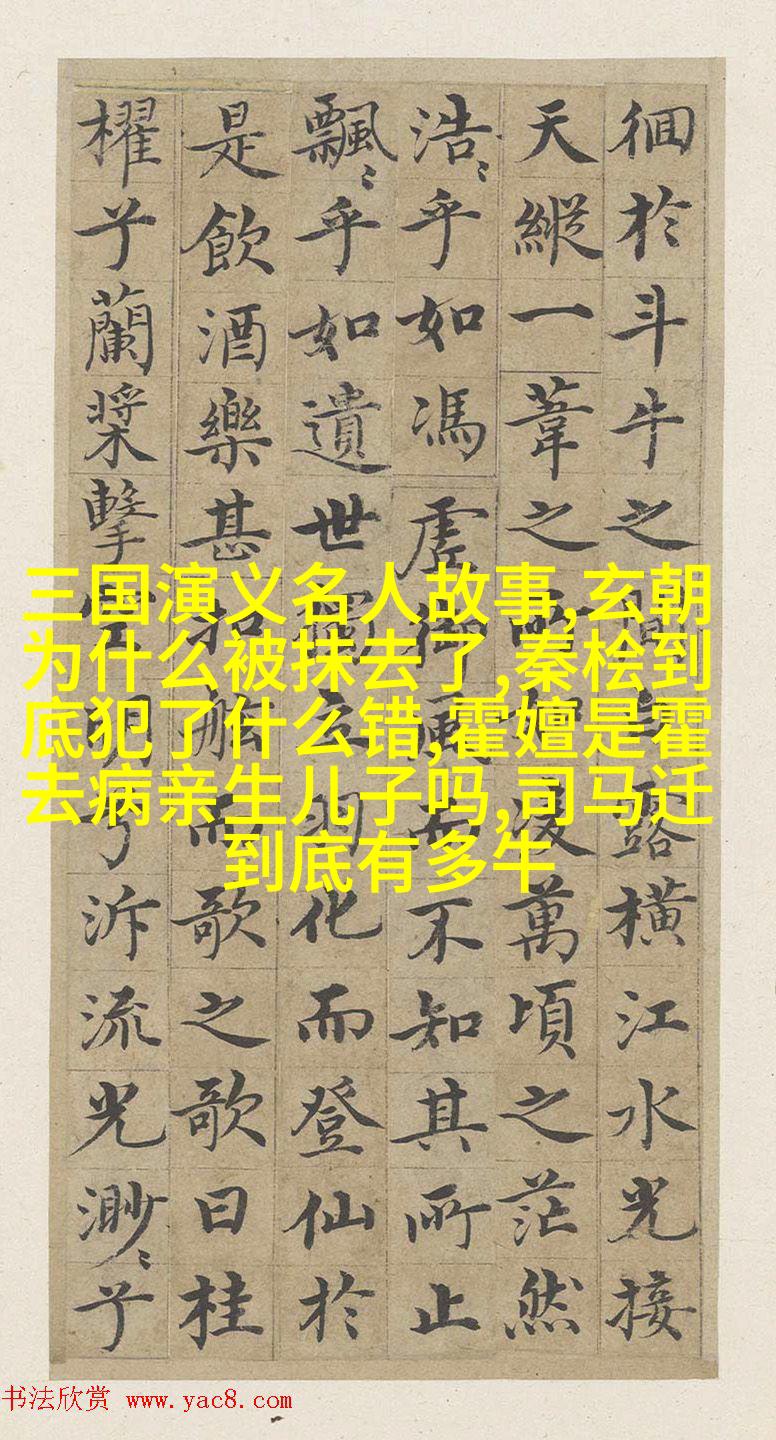 徊於斗牛之間白露橫江水光接
天縱一葦之所如凌萬頃之茫然
浩〻乎如馮虛御風而不知其所止
飄〻乎如遺世獨立羽化而登仙於
是飲酒樂甚扣舷而歌之歌曰桂
櫂兮蘭槳擊空明兮泝流光渺〻兮
三国演义名人故事,玄朝
为什么被抹去了,秦桧到
底犯了什么错,霍嬗是霍
去病亲生儿子吗,司马迁
到底有多牛
书法欣赏 www.yac8.com